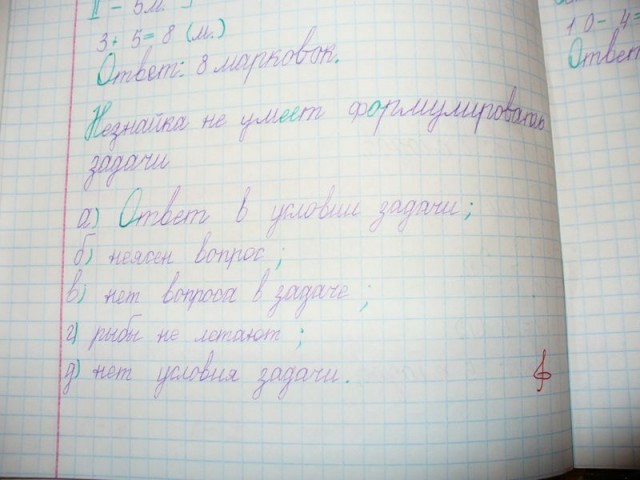 II - 5 м.
3 + 5 = 8 (м.)
Ответ: 8 марковок.
Незнайка не умеет формулировать
задачи
а) Ответ в условии задачи;
б) неясен вопрос;
в) нет вопроса в задаче;
г) рыбы не летают;
д) нет условия задачи.
10 - 4 =
Ответ